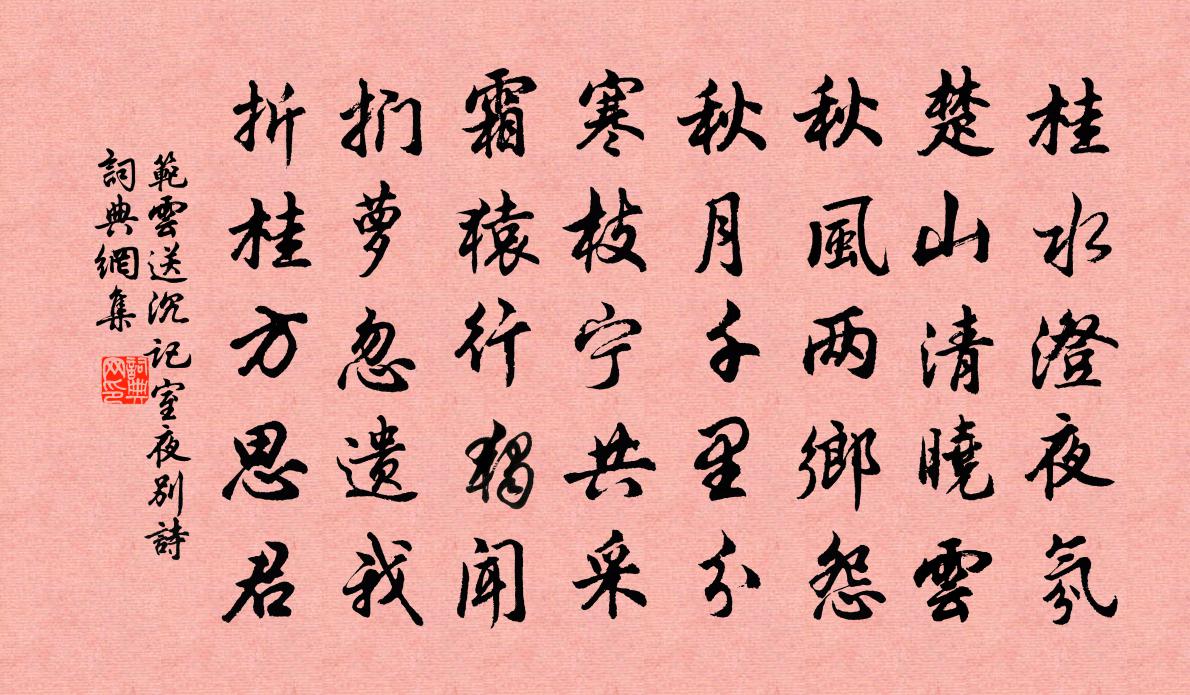 桂水澄夜氛
楚山清曉雲
秋風两鄉怨
秋月千里分
寒枝宁共采
霜猿行獨聞
扪萝忽遗我
折桂方思君
範雲送沉記室夜别詩
詞典網集
詞典网印